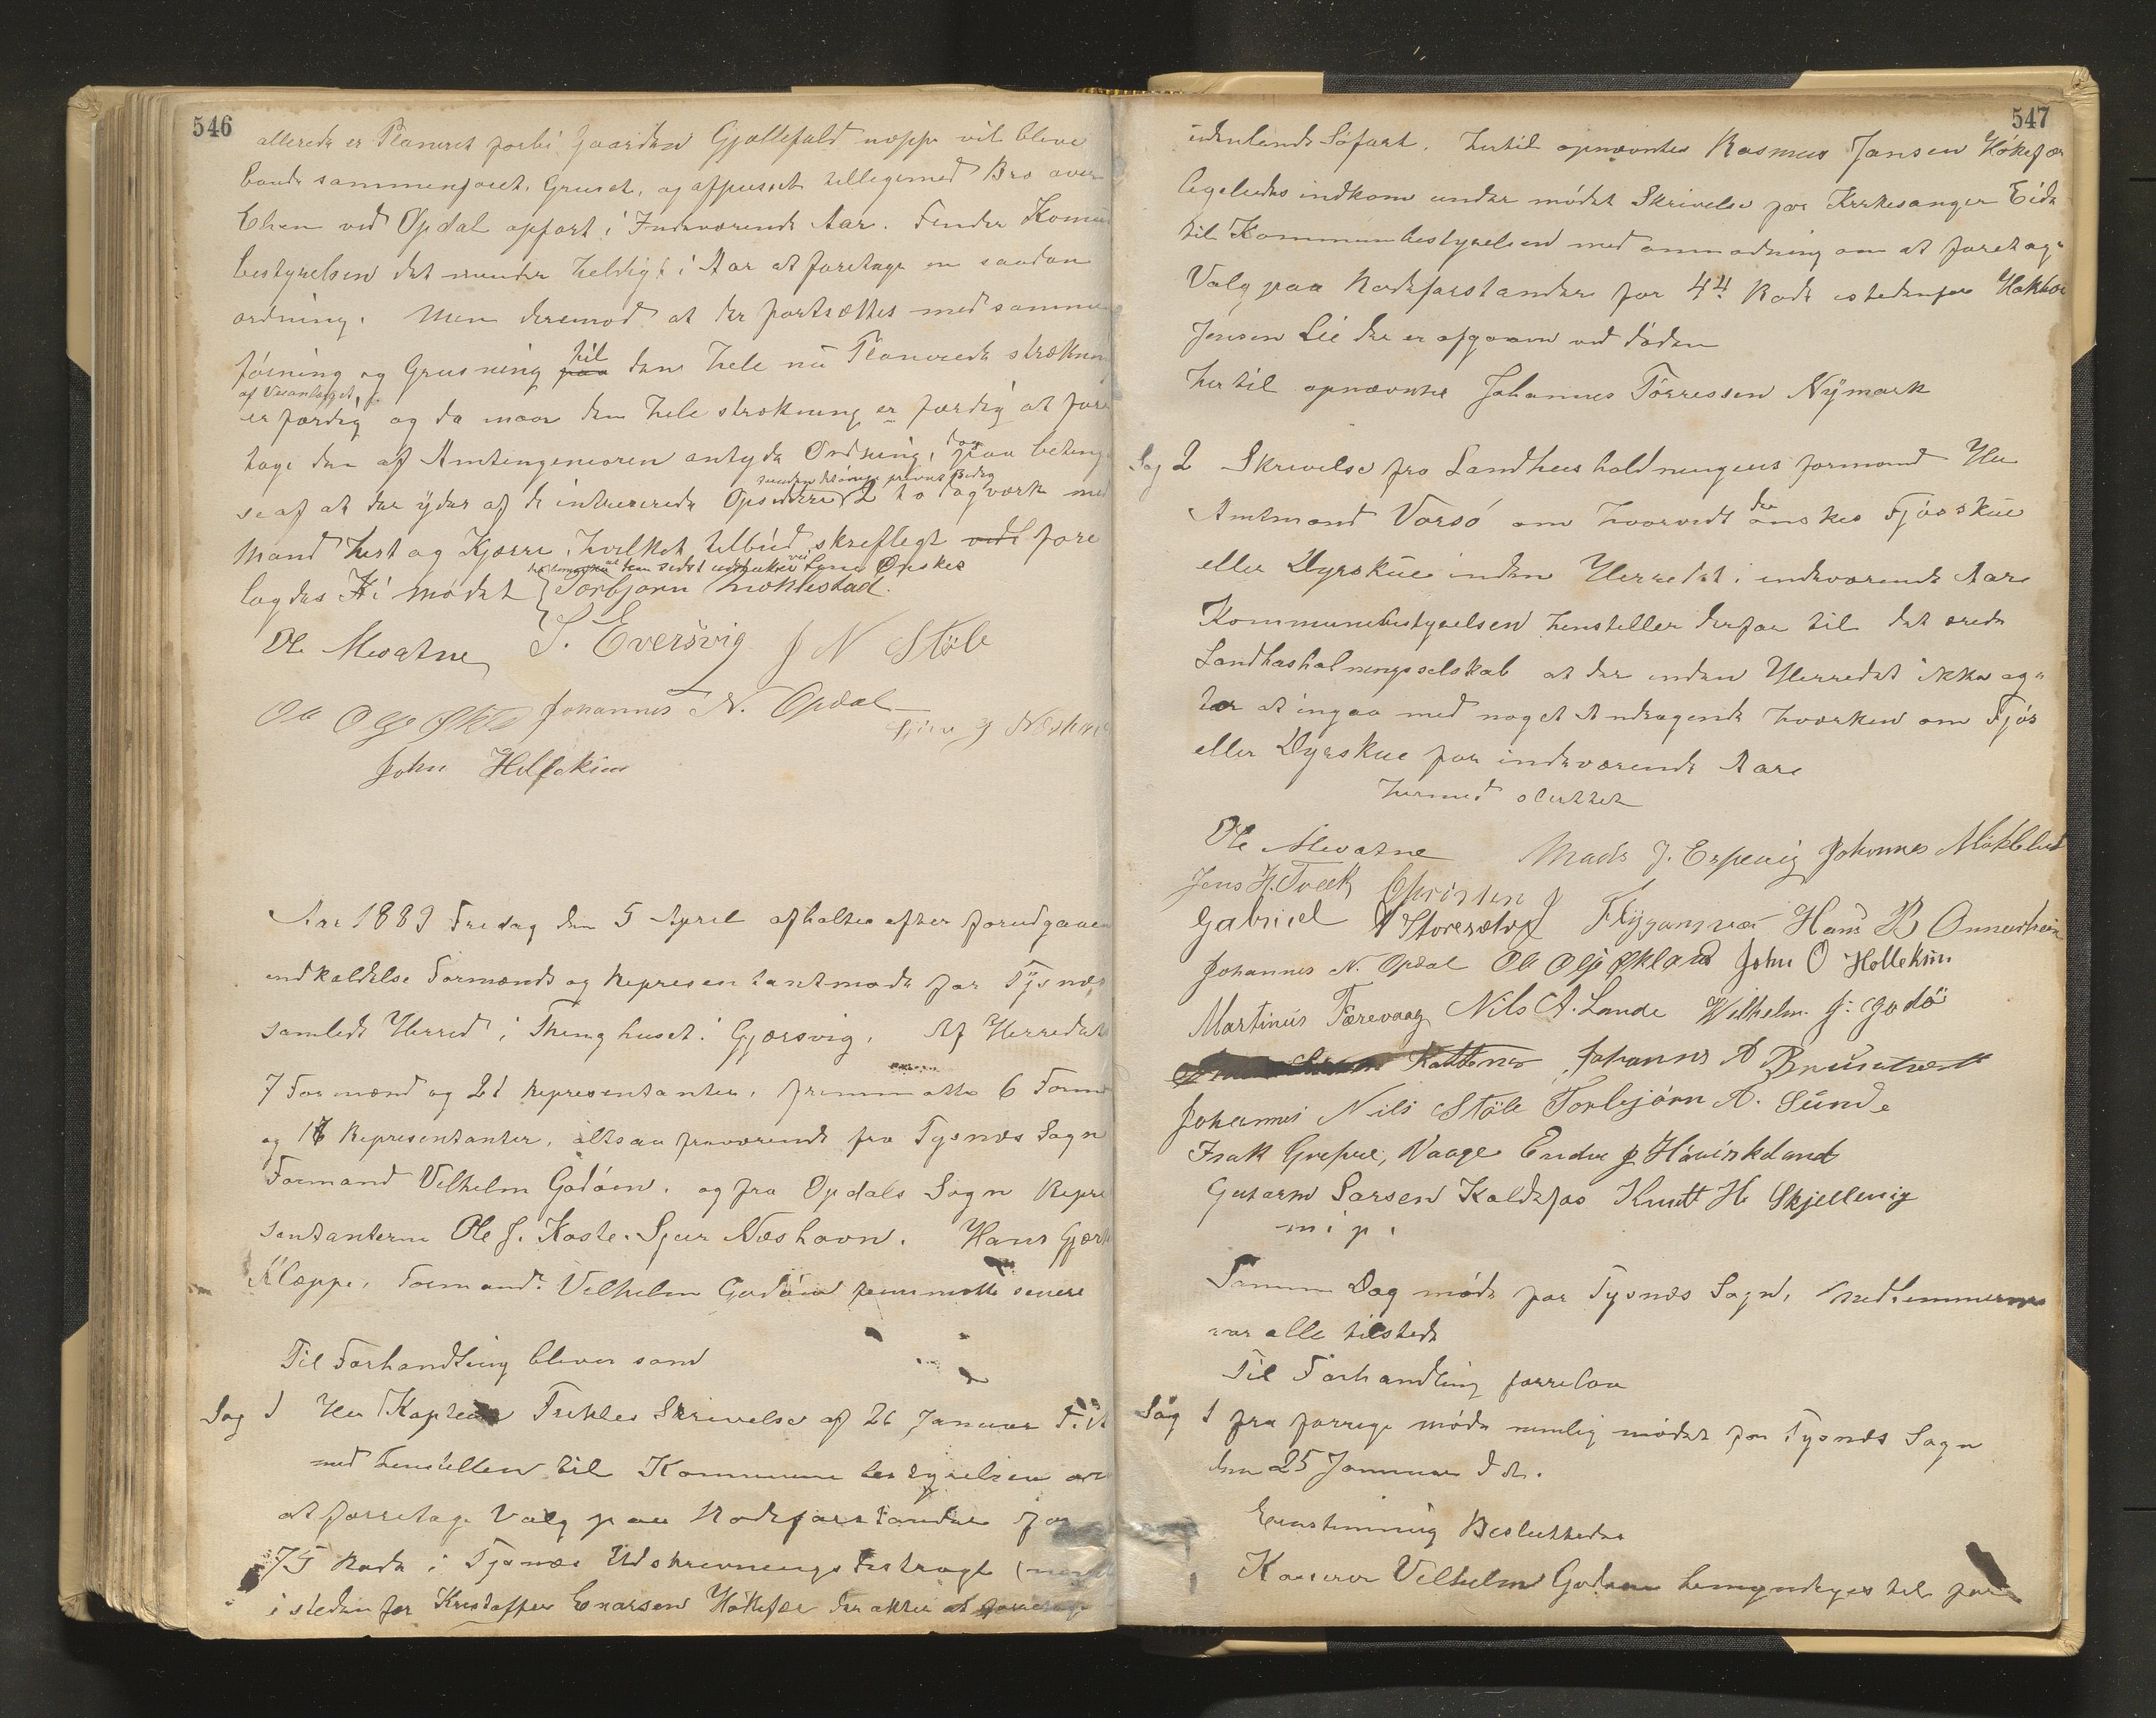 546
allerede er Planeret forbi Gaarden Gjellefald neppe vil bleve
baade sammenføiet, Gruset, og afpusset tillegemed Bro over
Elven ved Opdal opført i Indeværende Aar. Finder Komune
bestyrelsen det mindre heldigt i Aar at foretage en saadan
ordning. Men derimod at der fortsættes med sammen
føining og Grusning til paa den hele nu Planerede strækning
af Veianlægget,
er færdig og da maar den hele strekning er færdig at fore
tage den af Amtingeniøren antyde Ordning, dog paa beting
se af at der ydes af de intreserede Opsiddere 2 to dagværk med
Mand hest og Kjærre, hvilket tilbud skreflegt vedl fore
lagdes i mødet Torbjørn Meklestad
Ole Mevatne S. Eversvig J N Støle
Ole Olss Økld Johannes N. Opdal
John Hillekim
Aar 1889 Fredag den 5 April afholtes efter forudgaaen
indkaldelse Formænds og Representantmøde for Tysnæs
samlede Herred i Thinghuset i Gjærsvig. Af Herredets
7 Formænd og 21 Representanter, fremmøtte 6 Formæ
og 18 Representanter, altsaa fraværende fra Tysnæs Sogn
Formand Vilhelm Godøen, og fra Opdals Sogn Repre
sentanterne Ole J. Koste. Sjur Næshavn. Hans Gjert
Kleppe, Formand Vilhelm Godøen fremmøtte senere
Til Forhandling blever som
Sag 1 Her Kaptein Trektes Skrivelse af 26 Januar
med henstillen til Kommunebestyrelsen om
at foretage Valg paa Rodeforstander for
75 Rode i Tysnæs Udskrevnings Destragt
i stedenfor Kristoffer Enarsen Høkefær der akter at foretage
547
udenlands Søfart. hertil opnævntes Rasmus Jansen Høkefær
legeledes indkom under mødet Skrivelse for Kirkesanger Eide
til Kommunebestyrelsen med anmodning om at foretage
Valg paa Rodeforstander for 44 Rode istedenfor
Jensen Lie der er afgaaen ved døden
hertil opnævntes Johannes Tørressen Nymark
Sag 2 Skrivelse fra Landhusholdningens formand Her
Amtmand Vorsø om hvorvidt der ønskes Fjøsskue
eller Dyrskue inden Herredet i indeværende Aar
Kommunebestyrelsen henstiller derfor til det ærede
Landhusholningsselskab at der inden Herredet ikke ag
ter at ingaa med noget Andragende hverken om Fjøs
eller Dyrskue for indeværende Aar
hermed sluttet
Ole Mevatne Mads J. Espevig Johannes Møklebust
Jens H. Tveit Christen J
Gabriel A Storesætre Flygansvær Hans B Onnarheim
Johannes N. Opdal Ole Olss Økland John O Hollekim
Martinus Færevaag Nils A. Lande Wilhelm J. Godø
Kattenes Johannes A Bruntvedt
Johannes Nils Støle Torbjørn A. Sunde
Isak Grefsve, Vaage Endre J Høvikland
Gutorm Larsen Kaldefos Knutt H. Skjellevig
m. p.
Samme Dag møde for Tysnæs Sogn, medlemmerne
var alle tilstede
Til Forhandling forrelaa
Sag 1 fra forrige møde nemlig mødet for Tysnæs Sogn
den 25 Januar d. A.
Eenstemmig Besluttedes
Kasserer Vilhelm Godøen bemyndeges til for